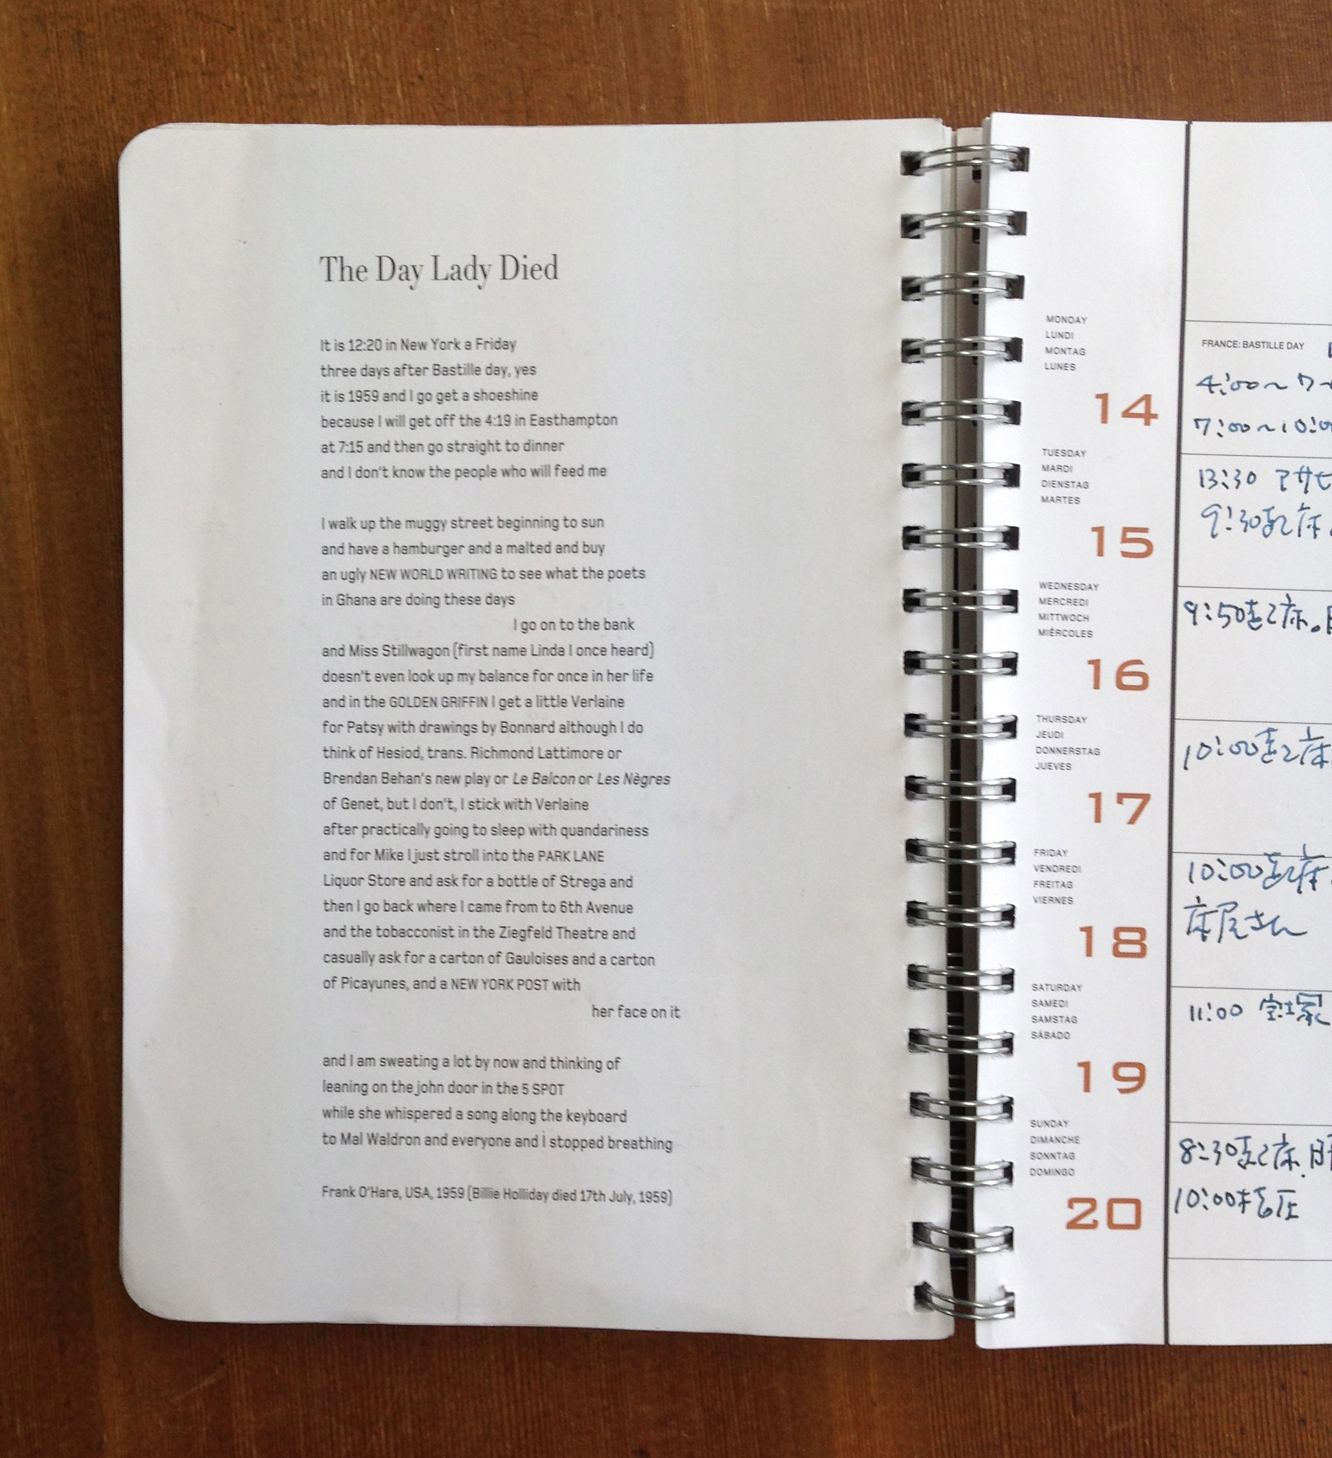 The Day Lady Died
It is 12:20 in New York a Friday
three days after Bastille day, yes
it is 1959 and I go get a shoeshine
because I will get off the 4:19 in Easthampton
at 7:15 and then go straight to dinner
and I don't know the people who will feed me
I walk up the muggy street beginning to sun
and have a hamburger and a malted and buy
an ugly NEW WORLD WRITING to see what the poets
in Ghana are doing these days
I go on to the bank
and Miss Stillwagon (first name Linda I once heard)
doesn't even look up my balance for once in her life
and in the GOLDEN GRIFFIN I get a little Verlaine
for Patsy with drawings by Bonnard although I do
think of Hesiod, trans. Richmond Lattimore or
Brendan Behan's new play or Le Balcon or Les Nègres
of Genet, but I don't, I stick with Verlaine
after practically going to sleep with quandariness
and for Mike I just stroll into the PARK LANE
Liquor Store and ask for a bottle of Strega and
then I go back where I came from to 6th Avenue
and the tobacconist in the Ziegfeld Theatre and
casually ask for a carton of Gauloises and a carton
of Picayunes, and a NEW YORK POST with
her face on it
and I am sweating a lot by now and thinking of
leaning on the john door in the 5 SPOT
while she whispered a song along the keyboard
to Mal Waldron and everyone and I stopped breathing
Frank O'Hara, USA, 1959 (Billie Holliday died 17th July, 1959)
MONDAY
LUNDI
MONTAG
LUNES
14
FRANCE: BASTILLE DAY
4:00~
7:00~10:00
TUESDAY
MARDI
DIENSTAG
MARTES
15
13:30 アサヒ
9:30起床
WEDNESDAY
MERCREDI
MITTWOCH
MIÉRCOLES
16
9:50起床。
THURSDAY
JEUDI
DONNERSTAG
JUEVES
17
10:00起床
FRIDAY
VENDREDI
FREITAG
VIERNES
18
10:00起床
床屋さん
SATURDAY
SAMEDI
SAMSTAG
SÁBADO
19
11:00 宝塚
SUNDAY
DIMANCHE
SONNTAG
DOMINGO
20
8:30起床.
10:00